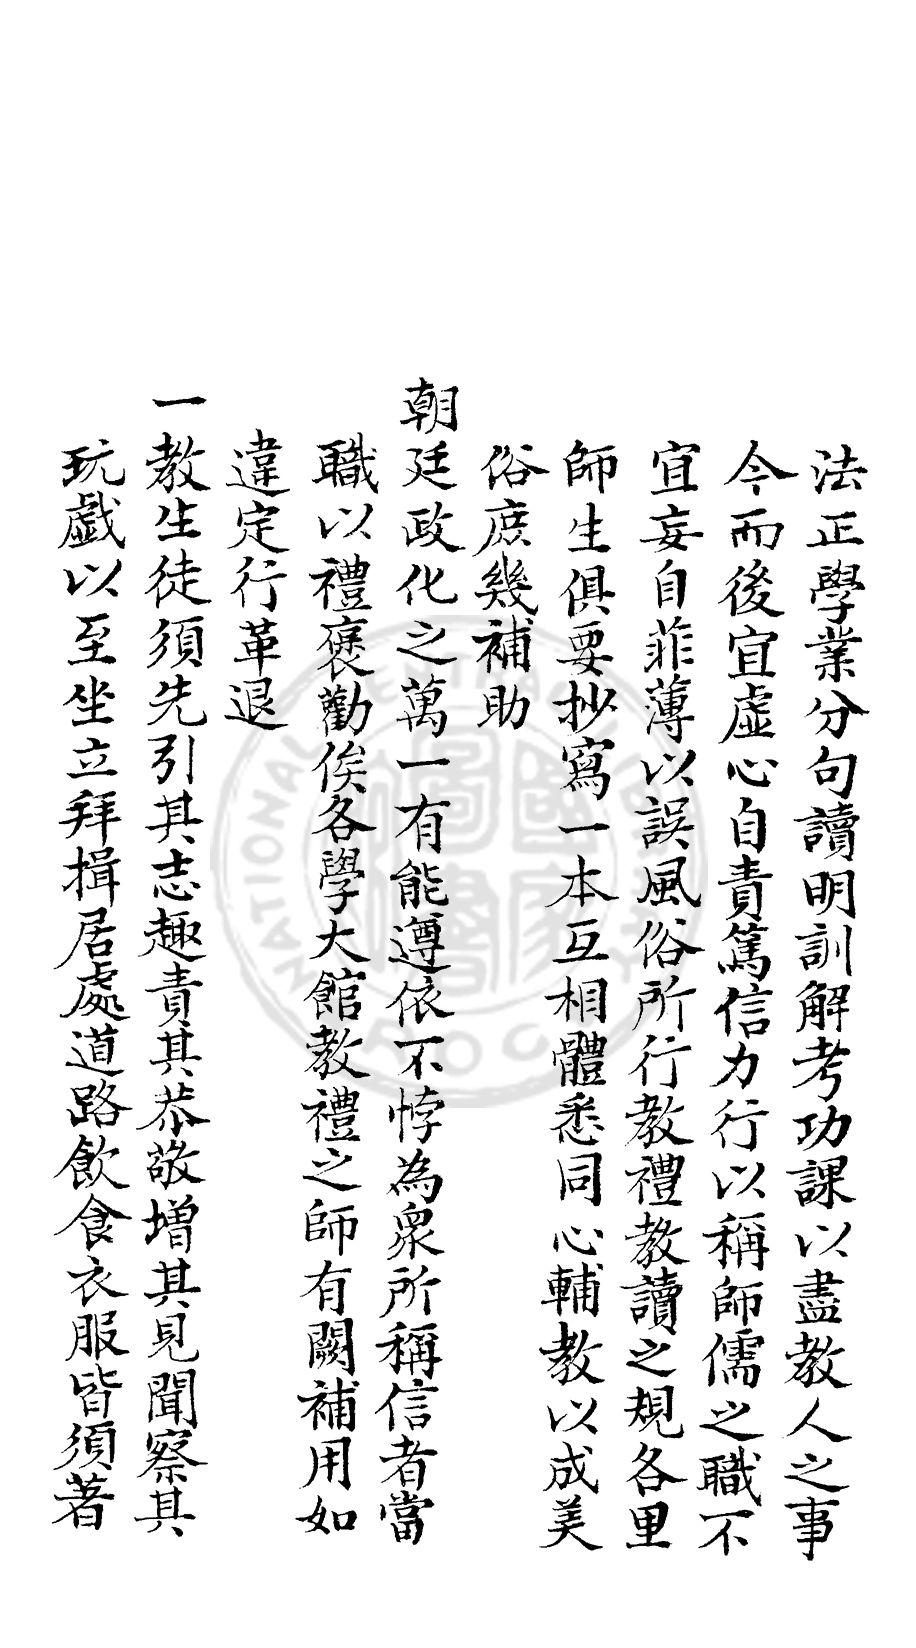 法正學業分句讀明訓解考功課以盡教人之事
今而後宜虛心自責篤信力行以稱師儒之職不
宜妄自菲薄以誤風俗所行教禮教讀之規各里
師生俱要抄寫一本互相體悉同心輔教以成美
俗庶幾補助
朝廷政化之萬一有能遵依不悖為衆所稱信者當
職以禮褒勸俟各學大館教禮之師有闕補用如
違定行革退
一教生徒須先引其志趣責其恭敬增其見聞察其
玩戲以至坐立拜揖居處道路飲食衣服皆須著